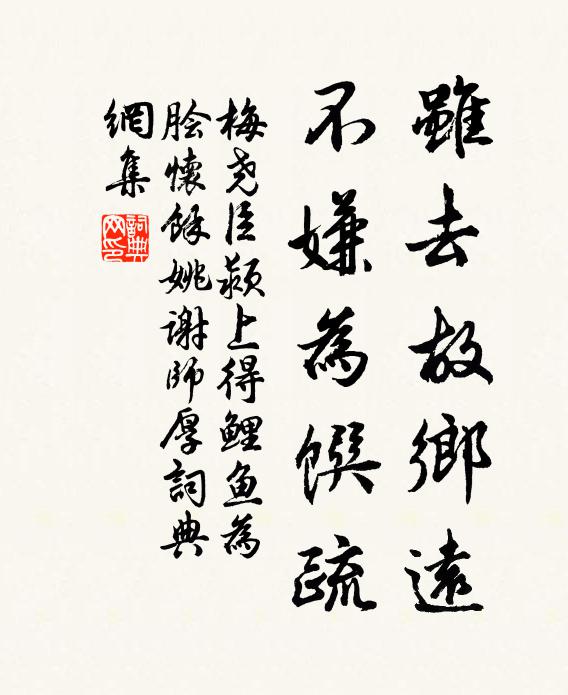 雖去故鄉遠
不嫌為饌疏
梅尧臣潁上得鯉鱼為
膾懷餘姚謝師厚詞典
網集
詞典网印